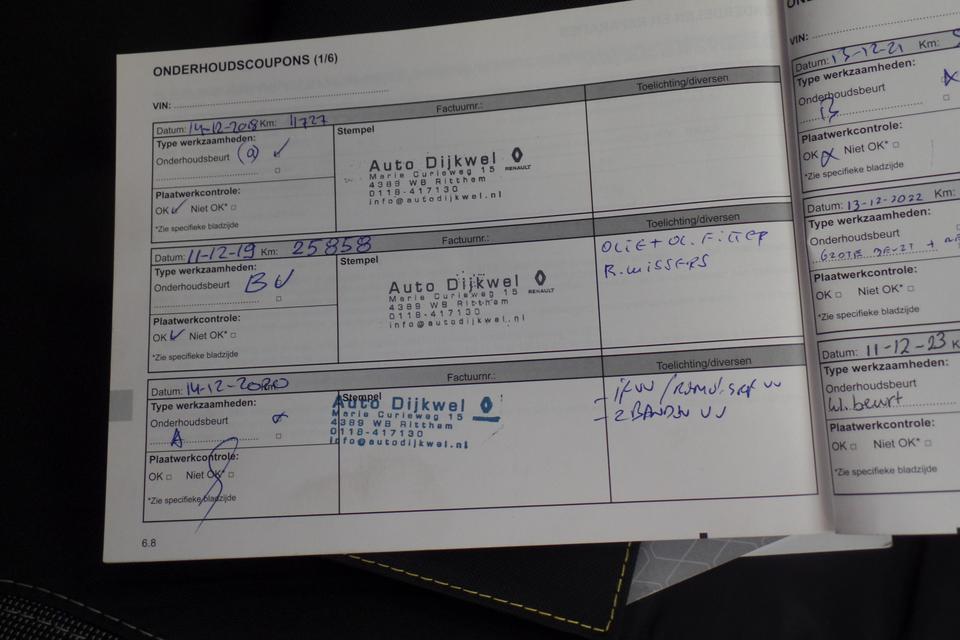 ONDERHOUDSCOUPONS (1/6)
VIN:
Datum: 14-12-2018 Km: 11727 Factuurnr.: Toelichting/diversen
Type werkzaamheden:
Onderhoudsbeurt (a)
Plaatwerkcontrole:
OK Niet OK*
*Zie specifieke bladzijde
Stempel
Auto Dijkwel RENAULT
Marie Curieweg 15
4389 WB Ritthem
0118-417130
info@autodijkwel.nl
Datum: 11-12-19 Km: 25858 Factuurnr.: Toelichting/diversen
Type werkzaamheden:
Onderhoudsbeurt B
Plaatwerkcontrole:
OK Niet OK*
*Zie specifieke bladzijde
Stempel
Auto Dijkwel RENAULT
Marie Curieweg 15
4389 WB Ritthem
0118-417130
info@autodijkwel.nl
OLIE + OL. FILTER
R.WISSERS
Datum: 14-12-2020 Factuurnr.: Toelichting/diversen
Type werkzaamheden:
Onderhoudsbeurt
A
Plaatwerkcontrole:
OK Niet OK*
*Zie specifieke bladzijde
Stempel
Auto Dijkwel
Marie Curieweg 15
4389 WB Ritthem
0118-417130
info@autodijkwel.nl
- 2 BANDEN VV
6.8
VIN:
Datum: 13-12-21 Km:
Type werkzaamheden:
Onderhoudsbeurt
Plaatwerkcontrole:
OK Niet OK*
*Zie specifieke bladzijde
Datum: 13-12-2022 Km:
Type werkzaamheden:
Onderhoudsbeurt
GROTE BEURT +
Plaatwerkcontrole:
OK Niet OK*
*Zie specifieke bladzijde
Datum: 11-12-23 K
Type werkzaamheden:
Onderhoudsbeurt
kl. beurt
Plaatwerkcontrole:
OK Niet OK*
*Zie specifieke bladzijde